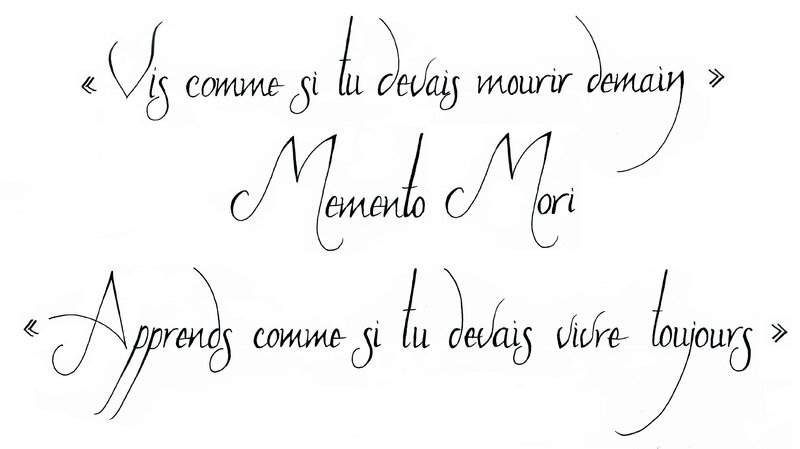 « Vis comme si tu devais mourir demain »
Memento Mori
« Apprends comme si tu devais vivre toujours »